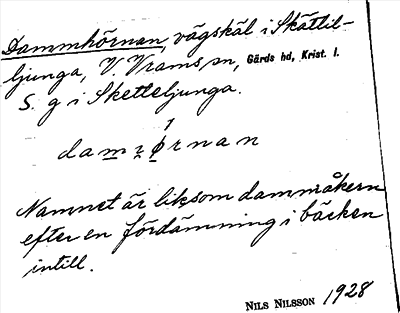 Dammhörnan, vägskäl i Skättil-
ljunga, V. Vrams sn, Gärds hd, Krist. l.
S. g i Sketteljunga.
Namnet är liksom dammåkern
efter en fördämning i bäcken
intill.
NILS NILSSON 1928